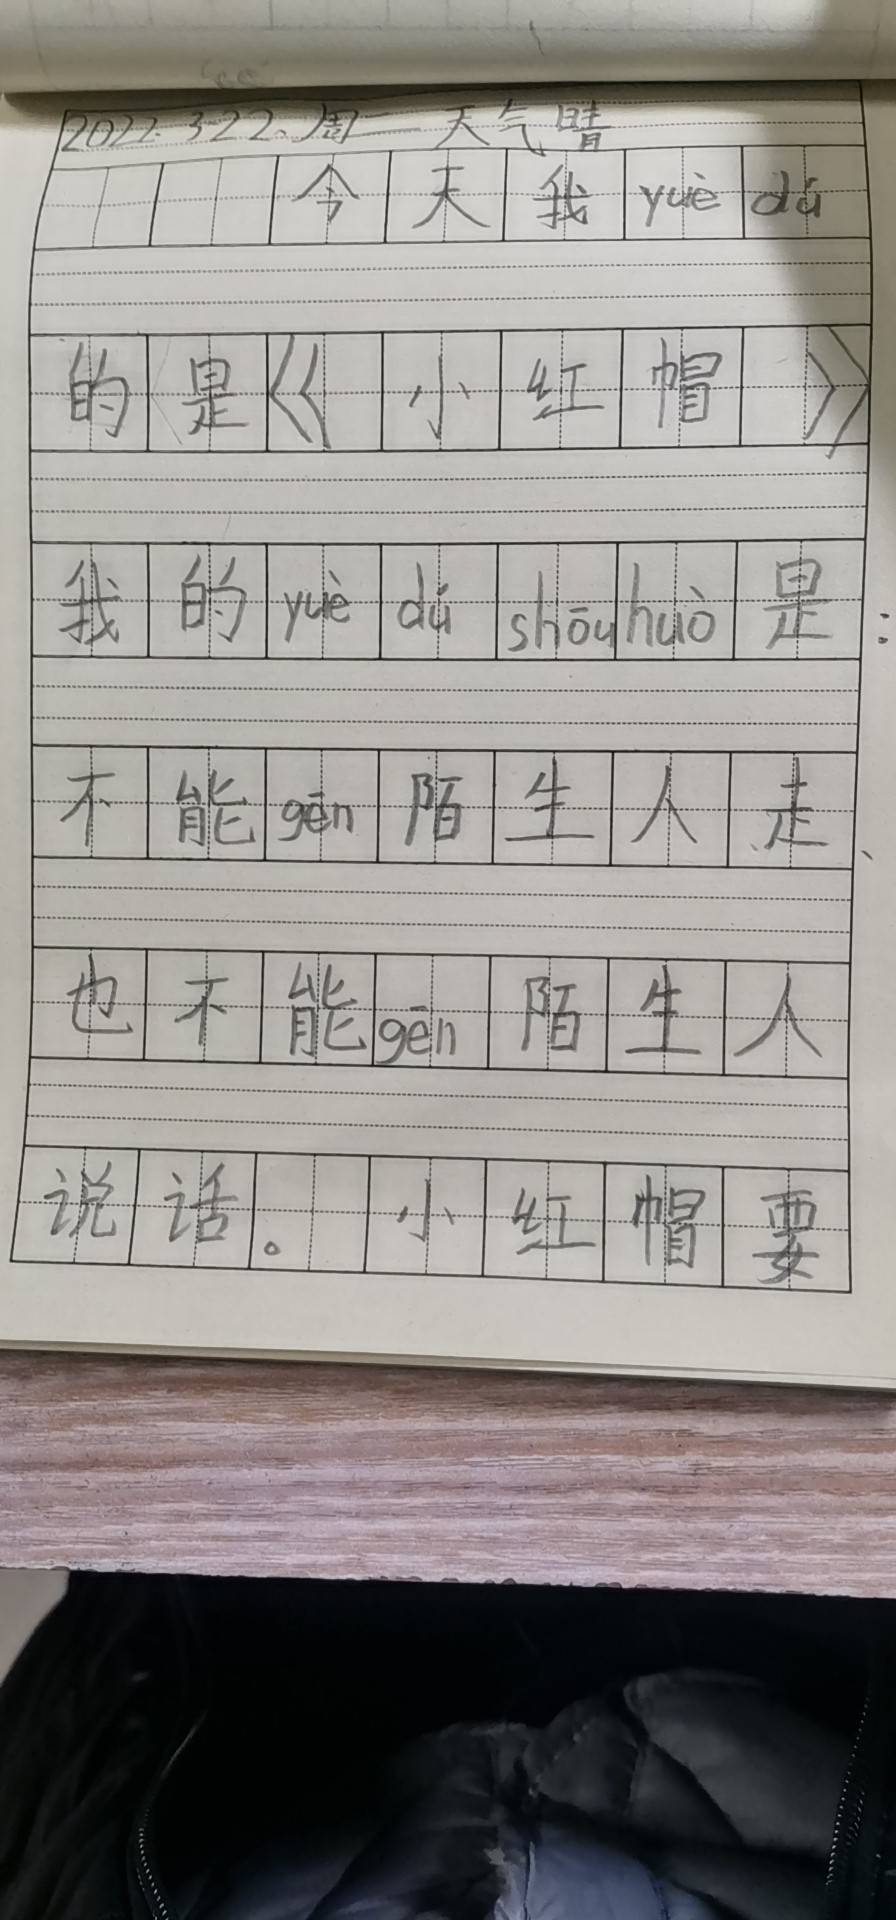 2022.3.22.周二 天气晴
今天我yuè dú
的是《小红帽》
我的yuè dú shōu huò是:
不能gēn陌生人走、
也不能gēn陌生人
说话。小红帽要